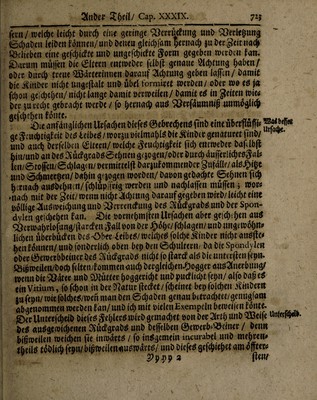 Ander Theil/ Cap. XXXIX. 723
sern/ welche leicht durch eine geringe Verrückung und Verletzung
Schaden leiden können/ und denen gleichsam hernach zu der Zeit nach
Belieben eine geschickte und ungeschickte Form gegeben werden kan.
Darum müssen die Eltern entweder selbst genaue Achtung haben/
oder durch treue Wärterinnen darauf Achtung geben lassen/ damit
die Kinder nicht ungestalt und übel formiret werden/ oder wo es ja
schon geschehen/ nicht lange damit verweilen/ damit es in Zeiten wie-
der zu recht gebracht werde/ so hernach aus Versäumniß unmöglich
geschehen könte.
Die anfänglichen Ursachen dieses Gebrechens sind eine überflüssi-
ge Feuchtigkeit des Leibes/ worzu vielmahls die Kinder genaturet sind/
und auch derselben Eltern/ welche Feuchtigkeit sich entweder daselbst
hin/ und an des Rückgrads Sehnen gezogen/ oder durch äusserliches Fal-
len/ Stossen/ Schlagen/ vermittelst darzukommender Zufälle/ als Hitze
und Schmertzen/ dahin gezogen worden/ davon gedachte Sehnen sich
hernach ausdehnen/ schlüpfferig werden und nachlassen müssen; wor-
nach mit der Zeit/ wenn nicht Achtung darauf gegeben wird/ leicht eine
völlige Ausweichung und Verrenckung des Rückgrads und der Spon-
dylen geschehen kan. Die vornehmsten Ursachen aber geschehen aus
Verwahrlosung/ starcken Fall von der Höhe/ schlagen/ und ungewöhn-
lichen überdürcken des Ober-Leibes/ welches solche Kinder nicht ausste-
hen können/ und sonderlich oben bey den Schultern/ da die Spondylen
oder Gewerbbeiner des Rückgrads nicht so starck als die untersten seyn.
Bißweilen/ doch selten/ kommen auch dergleichen Hogger aus Anerbung/
wenn die Väter und Mütter hoggericht und pucklicht seyn/ also daß es
ein Vitium, so schon in der Natur stecket/ scheinet bey solchen Kindern
zu seyn/ wie solches/ weil man den Schaden genau betrachtet/ gnugsam
abgenommen werden kan/ und ich mit vielen Exempeln beweisen könte.
Der Unterscheid dieses Fehlers wird gemachet von der Arth und Weise
des ausgewichenen Rückgrads und desselben Gewerb-Beiner/ denn
bißweilen weichen sie inwärts/ so insgemein incurabel und mehren-
theils tödlich seyn/ bißweilen auswärts/ und dieses geschiehet am öffter-
Yyyy 2 sten/
Was dessen
Ursache.
Unterscheid.